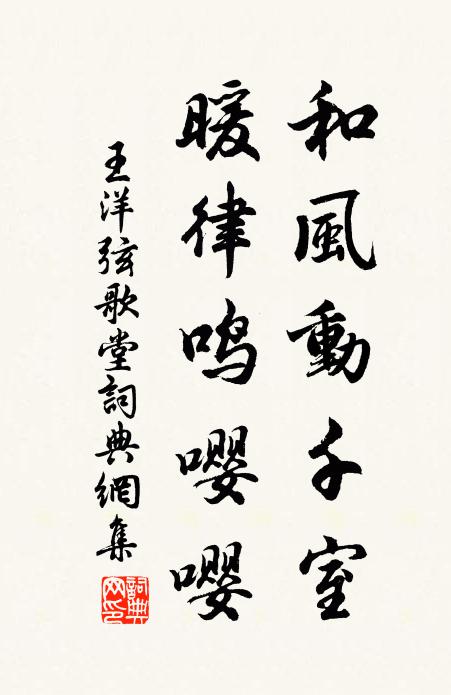 和風動千室
暖律鸣嚶嚶
王洋弦歌堂詞典網集
詞典網印